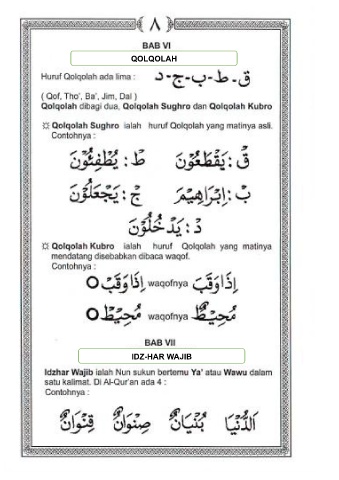 ٨
BAB VI
QOLQOLAH
Huruf Qolqolah ada lima : ق-ط-ب-ج-د
( Qof, Tho', Ba', Jim, Dal )
Qolqolah dibagi dua, Qolqolah Sughro dan Qolqolah Kubro
Qolqolah Sughro ialah huruf Qolqolah yang matinya asli.
Contohnya :
ق : يَقْطَعُوْنَ ط : يُطْفِئُوْنَ
ب : اِبْرَاهِيْمَ ج : يَجْعَلُوْنَ
د : يَدْخُلُوْنَ
Qolqolah Kubro ialah huruf Qolqolah yang matinya
mendatang disebabkan dibaca waqof.
Contohnya :
اِذَا وَقَبَ waqofnya اِذَا وَقَبْ
مُحِيْطٌ waqofnya مُحِيْطْ
BAB VII
IDZ-HAR WAJIB
Idzhar Wajib ialah Nun sukun bertemu Ya' atau Wawu dalam
satu kalimat. Di Al-Qur'an ada 4 :
Contohnya :
اَلدُّنْيَا بُنْيَانٌ صِنْوَانٌ قِنْوَانٌ